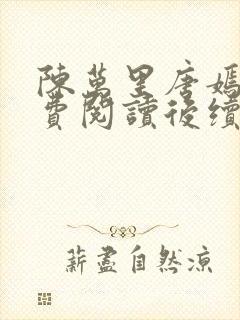 陳萬里唐嫣
費閱讀後續
薪盡自然涼